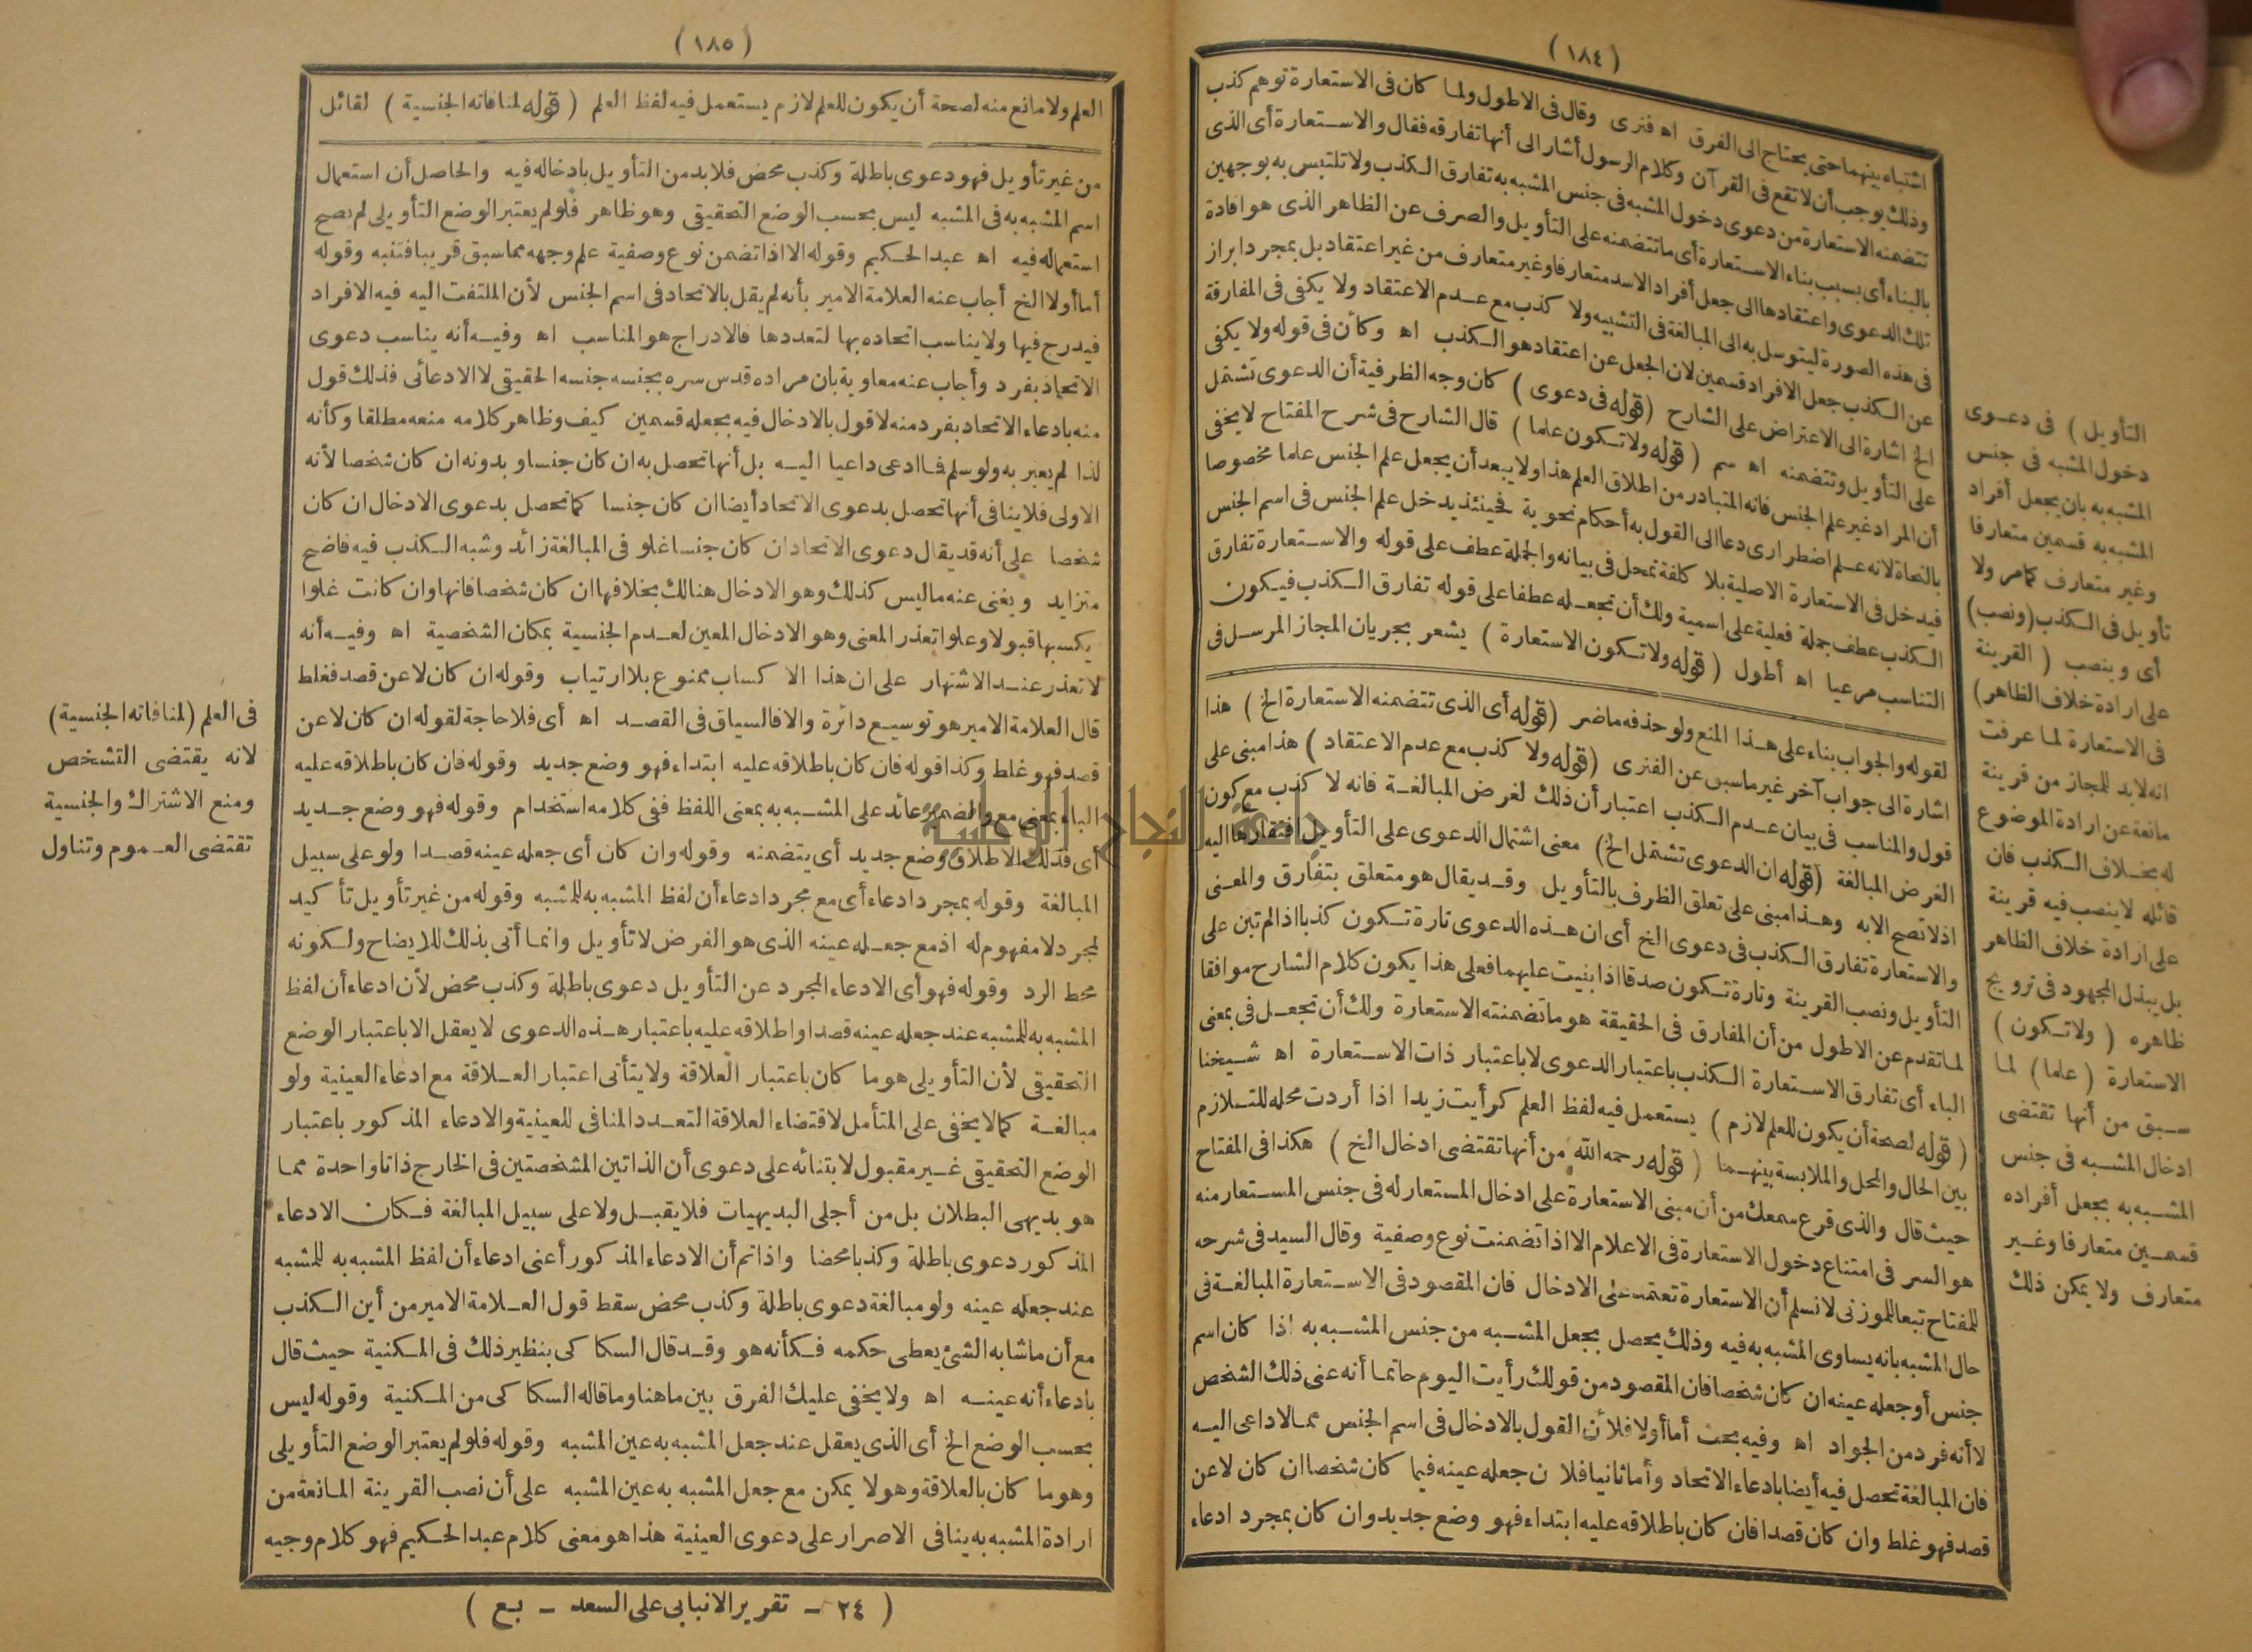 ( ١٨٤ )
اشتباه بينهما حتى يحتاج الى الفرق اه فنرى وقال فى الاطول ولما كان فى الاستعارة توهم كذب
وذلك يوجب أن لا تقع فى القرآن وكلام الرسول أشار الى أنها تفارقه فقال والاستعارة أى الذى
تتضمنه الاستعارة من دعوى دخول المشبه فى جنس المشبه به تفارق الكذب ولا تلتبس به بوجهين
بالبناء أى بسبب بناء الاستعارة أى ما تتضمنه على التأويل والصرف عن الظاهر الذى هو افادة
تلك الدعوى واعتقادها الى جعل أفراد الاسد متعارفا وغير متعارف من غير اعتقاد بل بمجرد ابراز
فى هذه الصورة ليتوسل به الى المبالغة فى التشبيه ولا كذب مع عدم الاعتقاد ولا يكفى فى المفارقة
عن الكذب جعل الافراد قسمين لان الجعل عن اعتقاد هو الكذب اه وكأن فى قوله ولا يكفى
الخ اشارة الى الاعتراض على الشارح (قوله فى دعوى) كان وجه الظرفية أن الدعوى تشتمل
على التأويل وتتضمنه اه سم (قوله ولا تكون علما) قال الشارح فى شرح المفتاح لا يخفى
أن المراد غير علم الجنس فانه المتبادر من اطلاق العلم هذا ولا يبعد أن يجعل علم الجنس علما مخصوصا
بالنحاة لانه علم اضطرارى دعا الى القول به أحكام نحوية فحينئذ يدخل علم الجنس فى اسم الجنس
فيدخل فى الاستعارة الاصلية بلا كلفة تمحل فى بيانه والجملة عطف على قوله والاستعارة تفارق
الكذب عطف جملة فعلية على اسمية ولك أن تجعله عطفا على قوله تفارق الكذب فيكون
التناسب مرعيا اه أطول (قوله ولا تكون الاستعارة) يشعر بجريان المجاز المرسل فى
لقوله والجواب بناء على هذا المنع ولو حذفه ما ضر (قوله أى الذى تتضمنه الاستعارة الخ) هذا
اشارة الى جواب آخر غير ما سبق عن الفنرى (قوله ولا كذب مع عدم الاعتقاد) هذا مبنى على
قول والمناسب فى بيان عدم الكذب اعتبار أن ذلك لغرض المبالغة فانه لا كذب مع كون
الغرض المبالغة (قوله ان الدعوى تشتمل الخ) معنى اشتمال الدعوى على التأويل افتقارها اليه
اذ لا تصح الا به وهذا مبنى على تعلق الظرف بالتأويل وقد يقال هو متعلق بتفارق والمعنى
والاستعارة تفارق الكذب فى دعوى الخ أى ان هذه الدعوى تارة تكون كذبا اذا لم تبن على
التأويل ونصب القرينة وتارة تكون صدقا اذا بنيت عليهما فعلى هذا يكون كلام الشارح موافقا
لما تقدم عن الاطول من أن المفارق فى الحقيقة هو ما تضمنته الاستعارة ولك أن تجعل فى بمعنى
الباء أى تفارق الاستعارة الكذب باعتبار الدعوى لا باعتبار ذات الاستعارة اه شيخنا
(قوله لصحة أن يكون للعلم لازم) يستعمل فيه لفظ العلم كرأيت زيدا اذا أردت محله للتلازم
بين الحال والمحل والملابسة بينهما (قوله رحمه الله من أنها تقتضى ادخال الخ) هكذا فى المفتاح
حيث قال والذى قرع سمعك من أن مبنى الاستعارة على ادخال المستعار له فى جنس المستعار منه
هو السر فى امتناع دخول الاستعارة فى الاعلام الا اذا تضمنت نوع وصفية وقال السيد فى شرحه
للمفتاح تبعا للموزنى لا نسلم أن الاستعارة تعتمد على الادخال فان المقصود فى الاستعارة المبالغة فى
حال المشبه بانه يساوى المشبه به فيه وذلك يحصل بجعل المشبه من جنس المشبه به اذا كان اسم
جنس أو جعله عينه ان كان شخصا فان المقصود من قولك رأيت اليوم حاتما أنه عنى ذلك الشخص
لا أنه فرد من الجواد اه وفيه بحث أما أولا فلأن القول بالادخال فى اسم الجنس مما لا داعى اليه
فان المبالغة تحصل فيه أيضا بادعاء الاتحاد وأما ثانيا فلان جعله عينه فيما كان شخصا ان كان لا عن
قصد فهو غلط وان كان قصدا فان كان باطلاقه عليه ابتداء فهو وضع جديد وان كان بمجرد ادعاء
التأويل) فى دعوى
دخول المشبه فى جنس
المشبه به بان يجعل أفراد
المشبه به قسمين متعارفا
وغير متعارف كما مر ولا
تأويل فى الكذب (ونصب)
أى وبنصب (القرينة
على ارادة خلاف الظاهر)
فى الاستعارة لما عرفت
انه لابد للمجاز من قرينة
مانعة عن ارادة الموضوع
له بخلاف الكذب فان
قائله لا ينصب فيه قرينة
على ارادة خلاف الظاهر
بل يبذل المجهود فى ترويج
ظاهره (ولا تكون)
الاستعارة (علما) لما
سبق من أنها تقتضى
ادخال المشبه فى جنس
المشبه به بجعل أفراده
قسمين متعارفا وغير
متعارف ولا يمكن ذلك
( ١٨٥ )
العلم ولا مانع منه لصحة أن يكون للعلم لازم يستعمل فيه لفظ العلم (قوله لمنافاته الجنسية) لقائل
من غير تأويل فهو دعوى باطلة وكذب محض فلابد من التأويل بادخاله فيه والحاصل أن استعمال
اسم المشبه به فى المشبه ليس بحسب الوضع التحقيقى وهو ظاهر فلو لم يعتبر الوضع التأويلى لم يصح
استعماله فيه اه عبد الحكيم وقوله الا اذا تضمن نوع وصفية علم وجهه مما سبق قريبا فتنبه وقوله
أما أولا الخ أجاب عنه العلامة الامير بأنه لم يقل بالاتحاد فى اسم الجنس لأن الملتفت اليه فيه الافراد
فيدرج فيها ولا يناسب اتحاده بها لتعددها فالادراج هو المناسب اه وفيه أنه يناسب دعوى
الاتحاد بفرد وأجاب عنه معاوية بان مراده قدس سره بجنسه جنسه الحقيقى لا الادعائى فذلك قول
منه بادعاء الاتحاد بفرد منه لا قول بالادخال فيه بجعله قسمين كيف وظاهر كلامه منعه مطلقا وكأنه
لذا لم يعبر به ولو سلم فما ادعى داعيا اليه بل أنها تحصل به ان كان جنسا وبدونه ان كان شخصا لأنه
الاولى فلا ينافى أنها تحصل بدعوى الاتحاد أيضا ان كان جنسا كما تحصل بدعوى الادخال ان كان
شخصا على أنه قد يقال دعوى الاتحاد ان كان جنسا غلو فى المبالغة زائد وشبه الكذب فيه فاضح
متزايد ويغنى عنه ما ليس كذلك وهو الادخال هنالك بخلافها ان كان شخصا فانها وان كانت غلوا
يكسبها قبولا وعلوا تعذر المعنى وهو الادخال المعين لعدم الجنسية بمكان الشخصية اه وفيه أنه
لا تعذر عند الاشتهار على ان هذا الا كساب ممنوع بلا ارتياب وقوله ان كان لا عن قصد فغلط
قال العلامة الامير هو توسيع دائرة والا فالسياق فى القصد اه أى فلا حاجة لقوله ان كان لا عن
قصد فهو غلط وكذا قوله فان كان باطلاقه عليه ابتداء فهو وضع جديد وقوله فان كان باطلاقه عليه
الباء بمعنى مع والضمير عائد على المشبه به بمعنى اللفظ ففى كلامه استخدام وقوله فهو وضع جديد
أى فذلك الاطلاق وضع جديد أى يتضمنه وقوله وان كان أى جعله عينه قصدا ولو على سبيل
المبالغة وقوله بمجرد ادعاء أى مع مجرد ادعاء أن لفظ المشبه به للمشبه وقوله من غير تأويل تأكيد
لمجرد لا مفهوم له اذ مع جعله عينه الذى هو الفرض لا تأويل وانما أتى بذلك للايضاح ولكونه
محط الرد وقوله فهو أى الادعاء المجرد عن التأويل دعوى باطلة وكذب محض لأن ادعاء أن لفظ
المشبه به للمشبه عند جعله عينه قصدا واطلاقه عليه باعتبار هذه الدعوى لا يعقل الا باعتبار الوضع
التحقيقى لأن التأويلى هو ما كان باعتبار العلاقة ولا يتأتى اعتبار العلاقة مع ادعاء العينية ولو
مبالغة كما لا يخفى على المتأمل لاقتضاء العلاقة التعدد المنافى للعينية والادعاء المذكور باعتبار
الوضع التحقيقى غير مقبول لابتنائه على دعوى أن الذاتين المشخصتين فى الخارج ذاتا واحدة مما
هو بديهى البطلان بل من أجلى البديهيات فلا يقبل ولا على سبيل المبالغة فكان الادعاء
المذكور دعوى باطلة وكذبا محضا واذا تم أن الادعاء المذكور أعنى ادعاء أن لفظ المشبه به للمشبه
عند جعله عينه ولو مبالغة دعوى باطلة وكذب محض سقط قول العلامة الامير من أين الكذب
مع أن ما شابه الشئ يعطى حكمه فكأنه هو وقد قال السكاكى بنظير ذلك فى المكنية حيث قال
بادعاء أنه عينه اه ولا يخفى عليك الفرق بين ما هنا وما قاله السكاكى من المكنية وقوله ليس
بحسب الوضع الخ أى الذى يعقل عند جعل المشبه به عين المشبه وقوله فلو لم يعتبر الوضع التأويلى
وهو ما كان بالعلاقة وهو لا يمكن مع جعل المشبه به عين المشبه على أن نصب القرينة المانعة من
ارادة المشبه به ينافى الاصرار على دعوى العينية هذا هو معنى كلام عبد الحكيم فهو كلام وجيه
فى العلم (لمنافاته الجنسية)
لانه يقتضى التشخص
ومنع الاشتراك والجنسية
تقتضى العموم وتناول
( ٢٤ - تقرير الانبابى على السعد - بع )
جامعة النجاح الوطنية